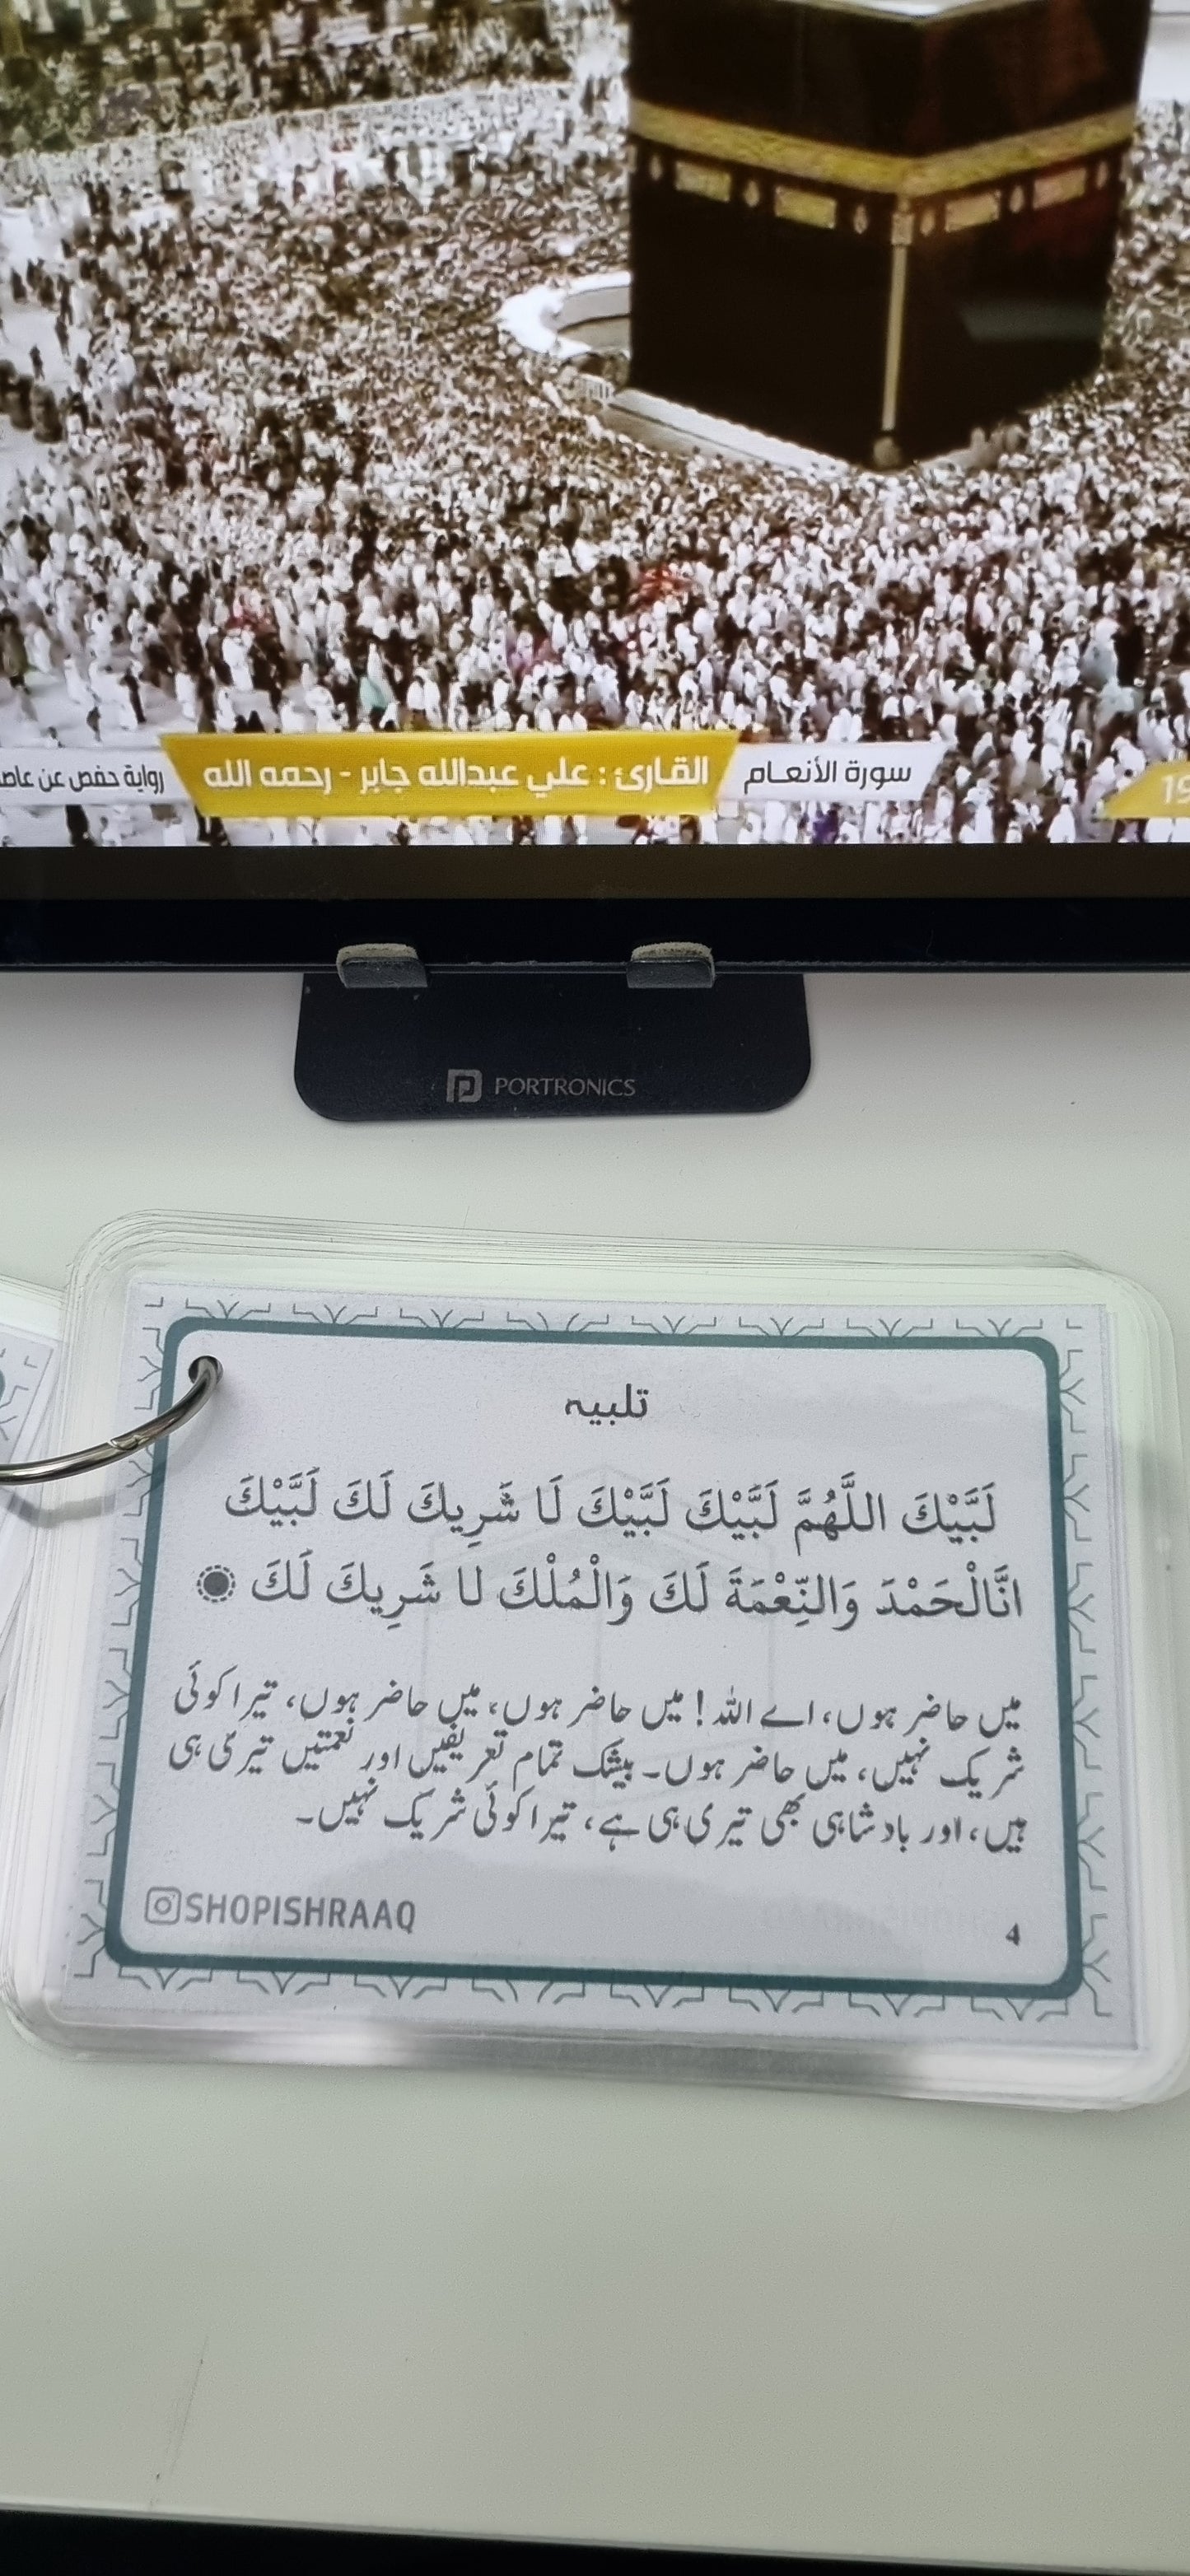 سورة الأنعام
القارئ : علي عبدالله جابر - رحمه الله
رواية حفص عن عاص
19
PORTRONICS
تلبیہ
لَبَّيْكَ اللَّهُمَّ لَبَّيْكَ لَبَّيْكَ لَا شَرِيكَ لَكَ لَبَّيْكَ
انَّالْحَمْدَ وَالنِّعْمَةَ لَكَ وَالْمُلْكَ لا شَرِيكَ لَكَ
میں حاضر ہوں، اے اللہ! میں حاضر ہوں، میں حاضر ہوں، تیرا کوئی
شریک نہیں، میں حاضر ہوں۔ بیشک تمام تعریفیں اور نعمتیں تیری ہی
ہیں، اور بادشاہی بھی تیری ہی ہے، تیرا کوئی شریک نہیں۔
SHOPISHRAAQ
4